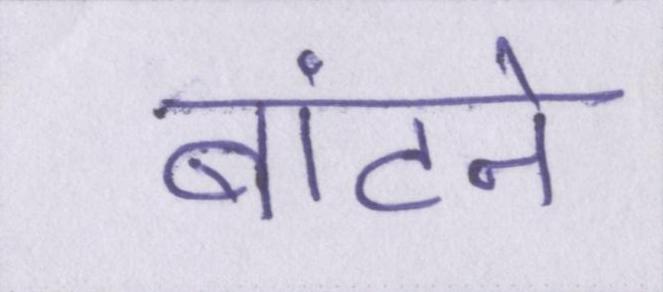 बांटने